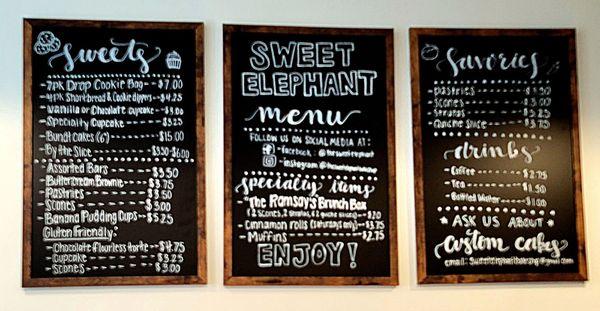 sweets
7pk Drop Cookie Bag $7.00
4pk Shortbread & Cookie dippers $4.25
Vanilla or Chocolate cupcake $3.00
Specialty Cupcake $3.25
Bundt cakes (6") $15.00
By the Slice $3.50-$6.00
Assorted Bars $3.50
Buttercream Brownie $3.75
Pastries $3.50
Scones $3.00
Banana Pudding Cups $5.25
Gluten Friendly
Chocolate flourless torte $4.75
Cupcake $3.25
Scones $3.00
SWEET
ELEPHANT
menu
FOLLOW US ON SOCIAL MEDIA AT:
facebook: @thesweetelephant
instagram @
specialty items
"The Ramsay's Brunch Box
(2 Scones, 2 Stratas, & 2 quiche slices) $20
Cinnamon rolls (Saturdays only) $3.75
Muffins $2.75
ENJOY!
Savories
Pastries
Scones
Stratas
Quiche Slice $3.75
drinks
Coffee
Tea
Bottled Water
ASK US ABOUT
Custom Cakes
email: